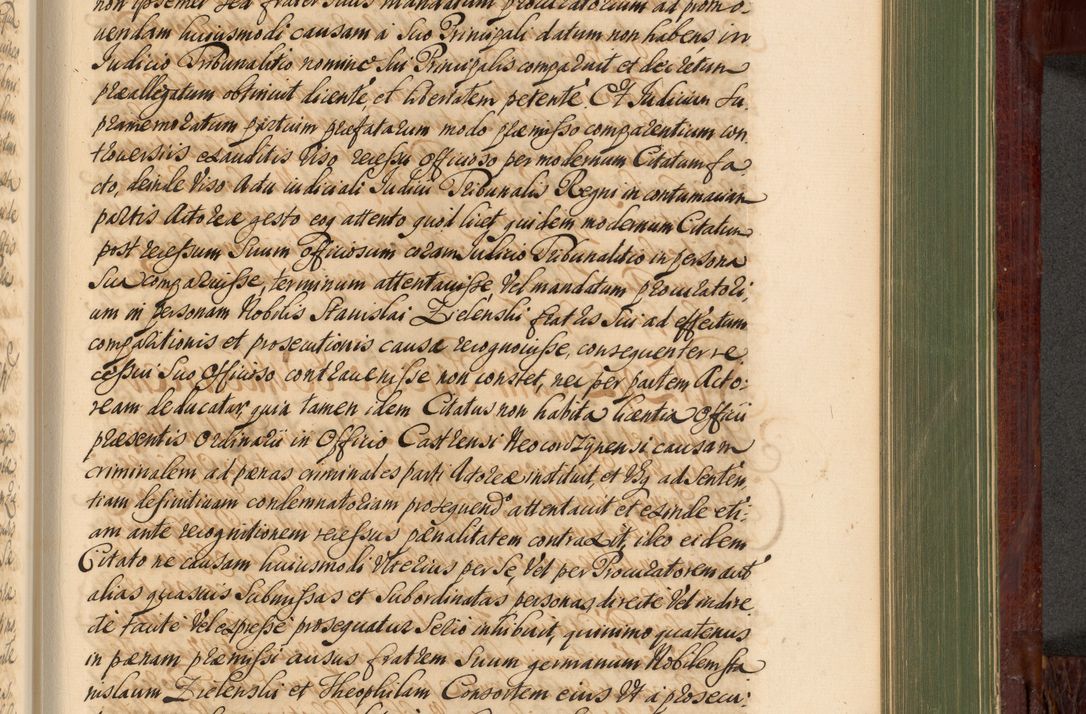 non ipsemet sed frater suus mandatum procuratorium ad promo
uendam huiusmodi causam a Suo Principali datum non habens in
Iudicio Tribunalitio nomine Sui Principalis comparuit et decretum
præallegatum obtinuit dicentẽ, et libertatem petentẽ Et Iudicium Su
pramemoratum partium præfatarum modo præmisso comparentium con
trouersiis exauditis Viso recessu officioso per modernum Citatum fa
cto, deinde Viso Actu iudiciali Iudicii Tribunalis Regni in contumaciam
partis Actoreæ gesto eoq attento quod licet quidem modernum Citatum
post recessum Suum Officiosum coram Iudicio Tribunalitio in persona
Sua comparuisse, terminum attentauisse Vel mandatum procuratori,
um in personam Nobilis Stanislai Zielenski fratris Sui ad effectum
comparitionis et prosecutionis causæ recognouisse, consequenter re
cessui Suo Officioso contrauenisse non constet, nec per partem Acto:
ream deducatur, quia tamen idem Citatus non habita licentia Officii
præsentis Ordinarii in Officio Castrensi Neocordzynensi causam
criminalem ad pænas criminales parti Actoreæ instituit, et Vsq ad Senten,
tiam definitiuam condemnatoriam prosequendo attentauit et exinde eti,
am ante recognitionem recessus pænalitatem contraxit, ideo eidem
Citato ne causam huiusmodi Vlterius per Se, Vel per Procuratorem aut
alias quasuis Submissas et Subordinatas personas directe Vel indire
cte tacite Vel expresse prosequatur Serio inhibuit, quinimo quatenus
in pænam præmissi ausus fratrem Suum germanum Nobilem Sta
nislaum Zielenski et Theophilam Consortem eius Vt a prosecu: